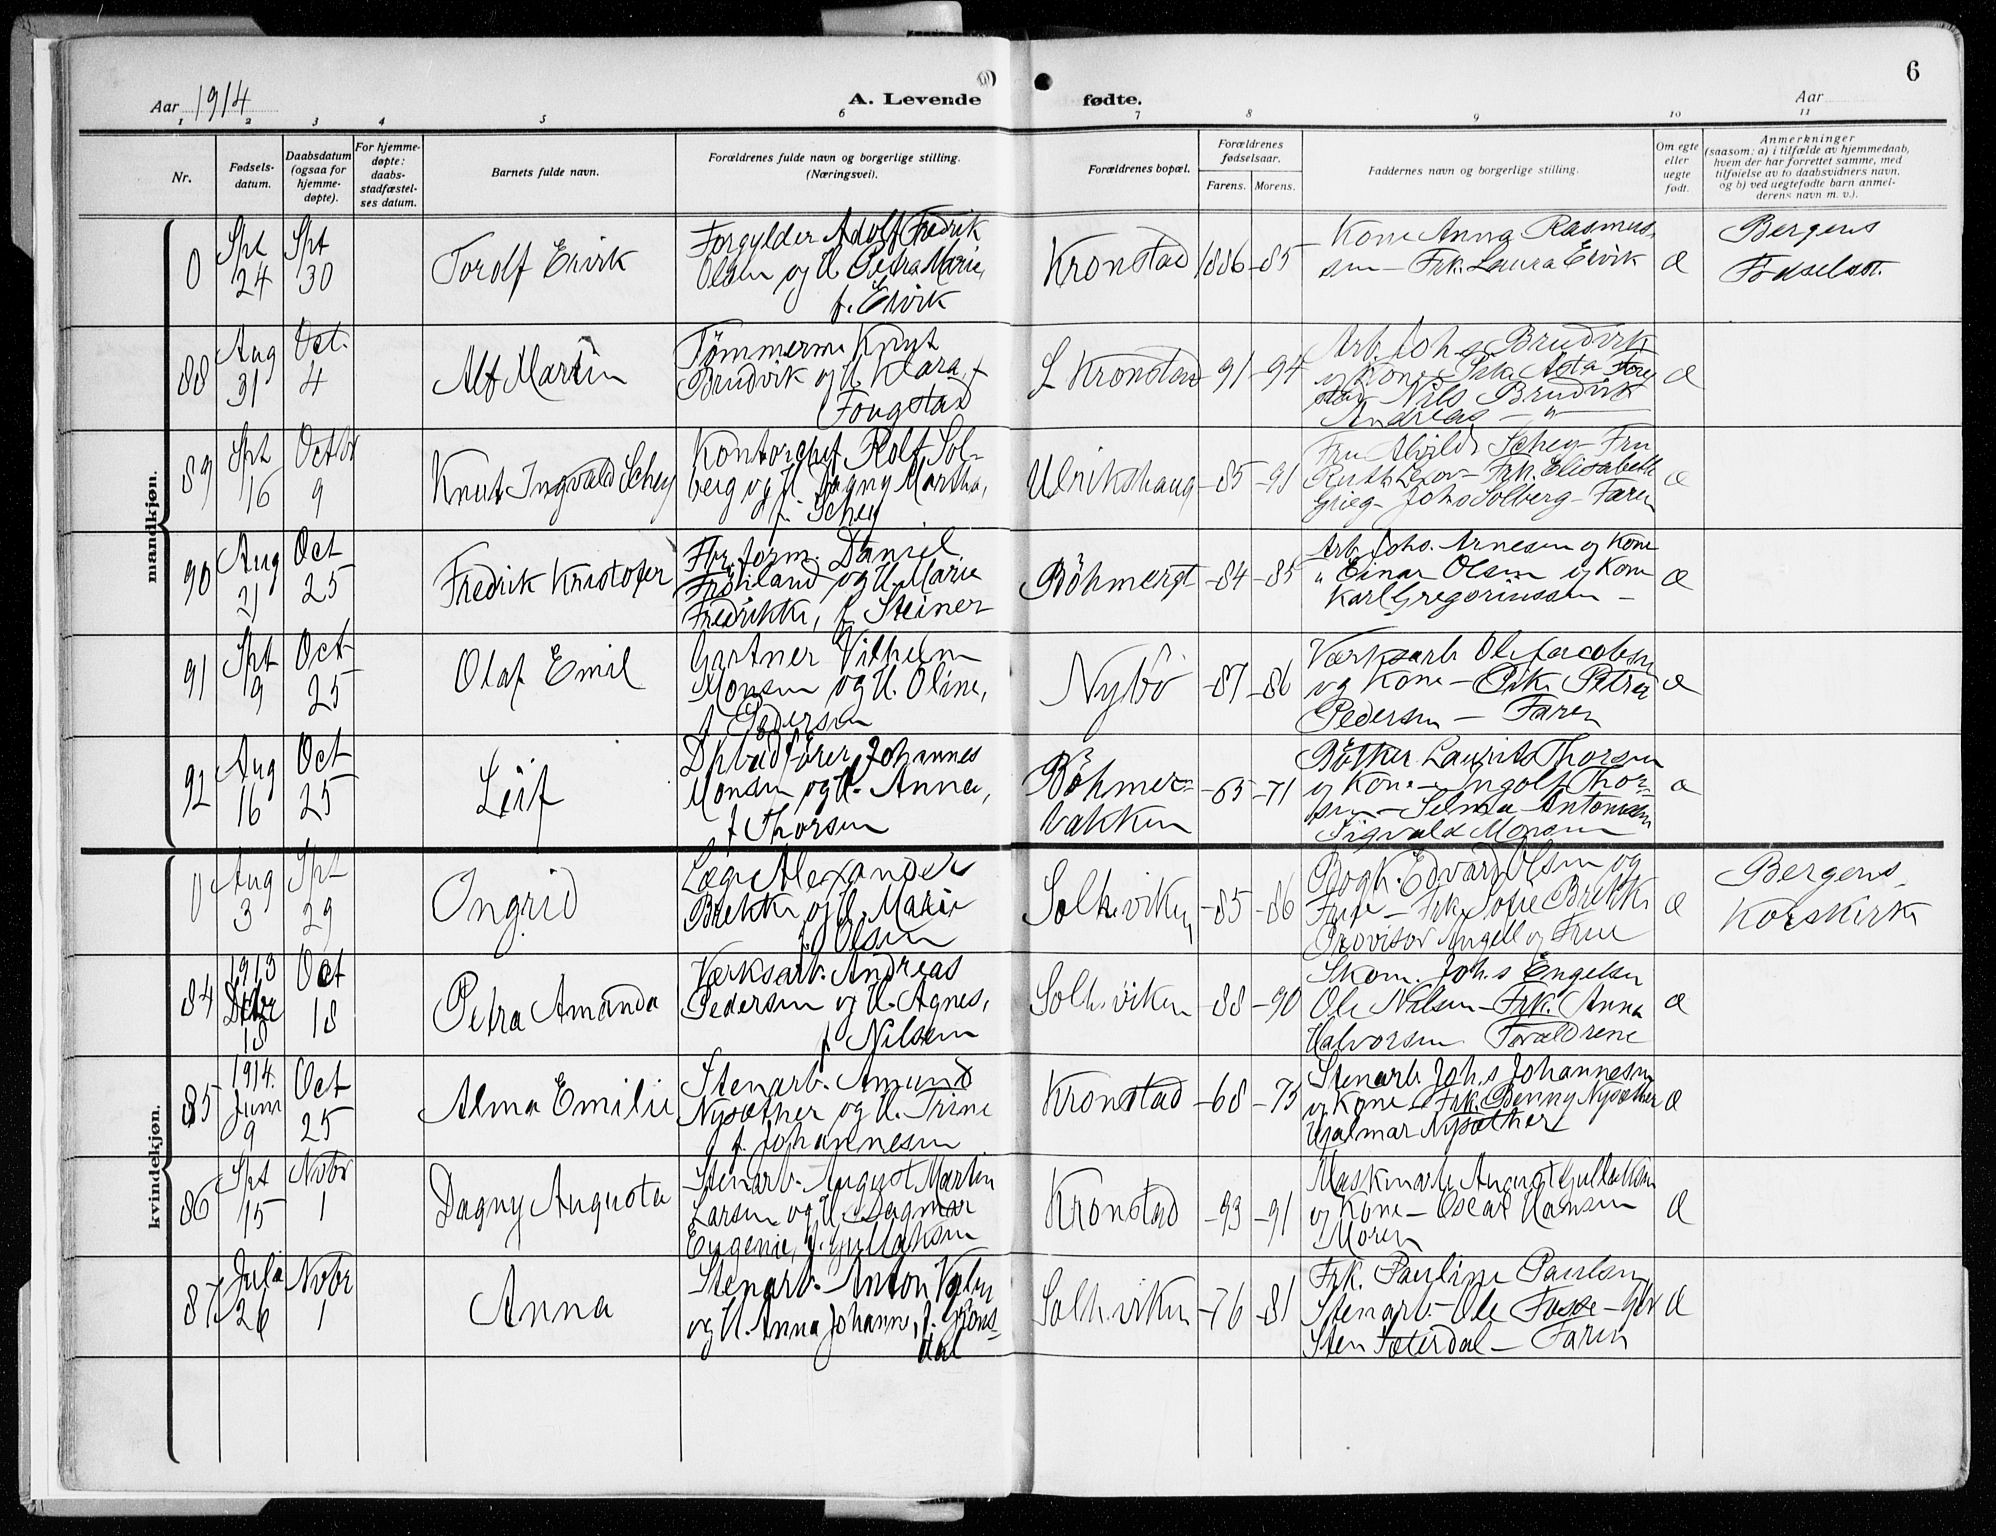 Aar 1914
A. Levende
fødte.
Aar
6
1 2 3 4 5 6 7 8 9 10 11
Nr.
Fødsels-
datum.
Daabsdatum
(ogsaa for
hjemme-
døpte).
For hjemme-
døpte:
daabs-
stadfæstel-
ses datum.
Barnets fulde navn.
Forældrenes fulde navn og borgerlige stilling.
(Næringsvei).
Forældrenes bopæl.
Forældrenes
fødselsaar.
Farens. Morens.
Faddernes navn og borgerlige stilling.
Om egte
eller
uegte
født.
Anmerkninger
(saasom: a) i tilfælde av hjemmedaab,
hvem der har forrettet samme, med
tilføielse av to daabsvidners navn,
og b) ved uegtefødte barn anmel-
derens navn m. v.).
mandkjøn.
0
Spt
24
Spt
30
Torolf Ervik
Forgylder Adolf Fredrik
Olsen og H. Petra Marie,
f. Ervik
Kronstad
1886 -85
Kone Anna Rasmus-
sen - Frk. Laura Ervik
æ
Bergens
Fødselsst.
88
Aug
31
Oct.
4
Alf Martin
Tømmerm. Knut
Brudvik og H. Klara, f
Fougstad
L Kronstad
-91 -94
Arb. Johs Brudvik
og Kone - Pike Asta
Nils Brudvik
Andreas - " -
æ
89
Spt
16
Octbr
9
Knut Ingvald Schey
Kontorchef Rolf Sol-
berg og H. Dagny Martha,
f. Schey
Ulrikshaug
-85 -91
Fru Schey - Fru
Ruth - Frk. Elisabeth
Grieg - Johs Solberg - Faren
æ
90
Aug
21
Oct
25
Fredrik Kristofer
Daniel
Frøhland og H. Marie
Fredrikke, f Steiner
Böhmergt
-84 -85
Arb. Johs. Arnesen og Kone
" Einar Olsen og Kone
Karl Gregoriussen -
æ
91
Spt
9
Oct
25
Olaf Emil
Gartner Vilhelm
Monsen og H. Oline,
f Pedersen
Nybö
-87 -86
Værksarb Ole Jacobsen
og Kone - Pike Petra
Pedersen - Faren
æ
92
Aug
16
Oct
25
Leif
Johannes
Monsen og H. Anna,
f Thorsen
Böhmer-
bakken
-65 -71
Bøtker Laurits Thorsen
og Kone - Ingolf Thor-
sen - Selma Antonsen
Sigvald Monsen
æ
kvindekjøn.
0
Aug
3
Spt
29
Ingrid
Læge Alexander
Brekke og H. Marie
f. Olsen
Solheviken
-85 -86
Bogh. Edvard Olsen og
Frue - Frk. Sofie Brekke
Provisor Angell og Frue
æ
Bergens
Korskirke
84
1913
Dcbr
18
Oct
18
Petra Amanda
Værksarb. Andreas
Pedersen og H. Agnes,
f Nilsen
Solheviken
-88 -90
Skom. Johs Engelsen
Ole Nilsen - Frk. Anna
Halvorsen Forældrene
æ
85
1914.
Juni
9
Oct
25
Alma Emilie
Stenarb. Amund
Nysæther og H. Trine
f. Johannesen
Kronstad
-68 -75
Stenarb Johs Johannesen
og Kone - Frk. Benny Nysæther
Hjalmar Nysæther
æ
86
Spt
15
Novbr
1
Dagny Augusta
Stenarb. August Martin
Larsen og H. Dagmar
Eugenie, f. Gullaksen
Kronstad
-93 -91
Maskinarb August Gullaksen
og Kone - Oscar Hansen
Moren
æ
87
Juli
26
Novbr
1
Anna
Stenarb. Anton
og H. Anna Johanne, f. Grøns-
dal
Solheviken
-76 -81
Frk. Pauline Paulsen
Stenarb - Ole Fosse -
Sten Sæterdal - Faren
æ